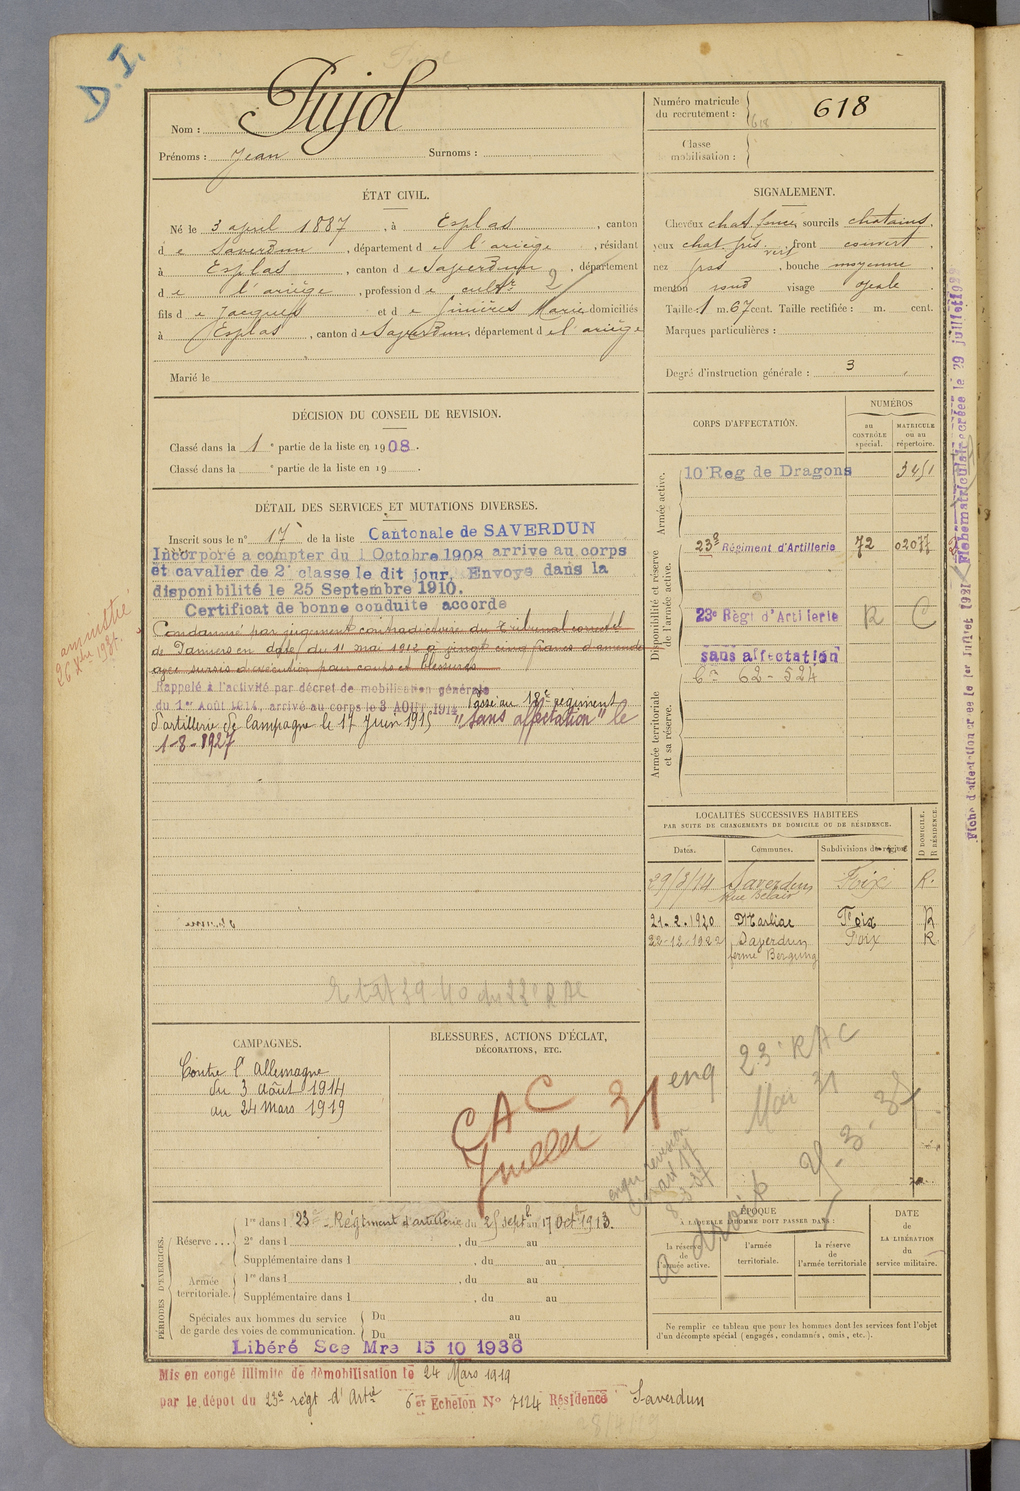 D. I.
Nom : Pujol
Prénoms : Jean Surnoms :
Numéro matricule du recrutement : 618
618
Classe mobilisation :
ÉTAT CIVIL.
Né le 3 april 1887, à Esplas, canton
de Saverdun, département de l'ariège, résidant
à Esplas, canton de Saverdun, département
de l'ariège, profession de cultr 2
fils de Jacques et de Marie domiciliés
à Esplas, canton de Saverdun, département de l'ariège
Marié le
SIGNALEMENT.
Cheveux chat. foncé, sourcils chatains,
yeux chat. gris. vert, front couvert,
nez gros, bouche moyenne,
menton rond visage ovale
Taille : 1 m. 67 cent. Taille rectifiée : m. cent.
Marques particulières :
Degré d'instruction générale : 3
DÉCISION DU CONSEIL DE REVISION.
Classé dans la 1e partie de la liste en 1908.
Classé dans la e partie de la liste en 19 .
DÉTAIL DES SERVICES ET MUTATIONS DIVERSES.
Inscrit sous le n° 17 de la liste Cantonale de SAVERDUN
Incorporé a compter du 1 Octobre 1908 arrive au corps
et cavalier de 2e classe le dit jour. Envoye dans la
disponibilité le 25 Septembre 1910.
Certificat de bonne conduite accorde
Condamné par jugement contradictoire du Tribunal correctel
de Pamiers en date du 11 mai 1912 a vingt cinq francs d'amende
avec sursis d'exécution pour coups et blessures
amnistié
Rappelé à l'activité par décret de mobilisation générale
du 1er Août 1914, arrivé au corps le 3 AOUT 1914 Passé au 18e régiment
d'artillerie de Campagne le 17 Juin 1915 "Sans affectation" le
1-8-1927
CORPS D'AFFECTATION.
NUMÉROS
au CONTRÔLE spécial.
MATRICULE ou au répertoire.
Armée active.
10e Reg de Dragons 3451
Disponibilité et réserve de l'armée active.
23e Régiment d'Artillerie 72
23e Régt d'Artillerie R C
sans affectation
62-524
Armée territoriale et sa réserve.
Fiche d'affectation créée le 1er Juillet 1921
Fiche matriculaire créée le 29 juillet 1922
LOCALITÉS SUCCESSIVES HABITÉES
PAR SUITE DE CHANGEMENTS DE DOMICILE OU DE RÉSIDENCE.
Dates. Communes. Subdivisions de région D DOMICILE. R RÉSIDENCE.
Saverdun Foix R.
Rue Belair
21-2.1920 Marliac Foix R
22-12-1922 Saverdun Foix R
ferme
CAMPAGNES.
Contre l'Allemagne
du 3 Août 1914
au 24 Mars 1919
BLESSURES, ACTIONS D'ÉCLAT,
DÉCORATIONS, ETC.
CAC
Juillet 31
23e RAC
Mai 31
PÉRIODES D'EXERCICES.
Réserve ... 1re dans l 23e Régiment d'artillerie du 25 septb. au 17 Octb. 1913.
2e dans l , du au
Supplémentaire dans l , du au
Armée territoriale. 1re dans l , du au
Supplémentaire dans l , du au
Spéciales aux hommes du service de garde des voies de communication. Du au
Du au
ÉPOQUE
À LAQUELLE L'HOMME DOIT PASSER DANS :
la réserve de l'armée active.
l'armée territoriale.
la réserve de l'armée territoriale
DATE de LA LIBÉRATION du service militaire.
Ne remplir ce tableau que pour les hommes dont les services font l'objet
d'un décompte spécial (engagés, condamnés, omis, etc.).
Libéré Sce Mre 15 10 1936
Mis en congé illimité de démobilisation le 24 Mars 1919
par le dépôt du 23e régt d'Artie 6er Echelon No 7124 Résidence Saverdun